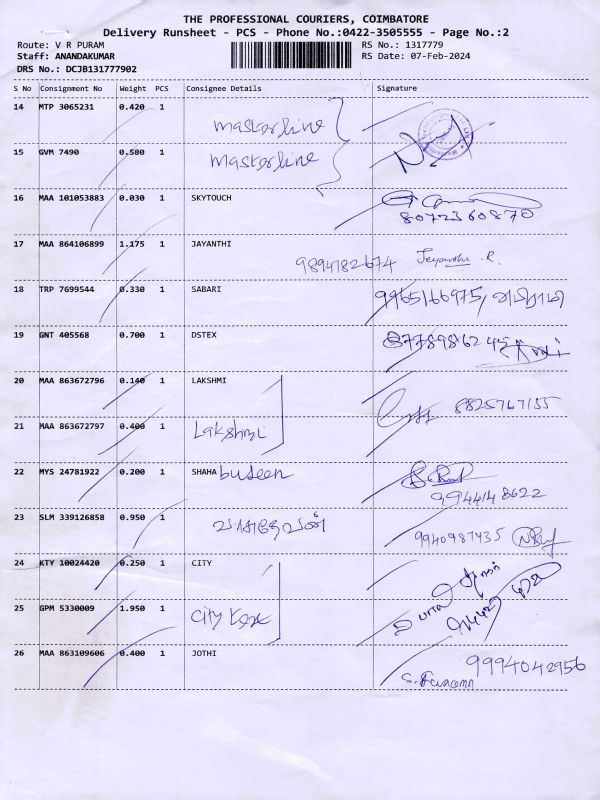 THE PROFESSIONAL COURIERS, COIMBATORE
Delivery Runsheet - PCS - Phone No.:0422-3505555 - Page No.:2
Route: V R PURAM
RS No.: 1317779
Staff: ANANDAKUMAR
RS Date: 07-Feb-2024
DRS No.: DCJB131777902
S No Consignment No Weight PCS Consignee Details Signature
14 MTP 3065231 0.420 1 Masterline
15 GVM 7490 0.580 1 Masterline
16 MAA 101053883 0.030 1 SKYTOUCH
8072360870
17 MAA 864106899 1.175 1 JAYANTHI
9894782674 Jeyanthi . R.
18 TRP 7699544 0.330 1 SABARI 9965166975,
19 GNT 405568 0.700 1 DSTEX 8778986245
20 MAA 863672796 0.140 1 LAKSHMI
8825767155
21 MAA 863672797 0.400 1 Lakshmi
22 MYS 24781922 0.200 1 SHAHA buseen
9944148622
23 SLM 339126858 0.950 1 வாசுதேவன்
9940987435
24 KTY 10024420 0.250 1 CITY
25 GPM 5330009 1.950 1 City
26 MAA 863109606 0.400 1 JOTHI 9994042956